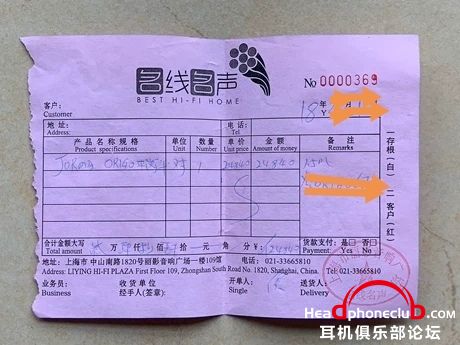 名线名声
BEST HI-FI HOME
No 0000369
客户:
Customer
18 年
Y
地 址:
Address:
电 话:
Tel
产品名称规格
Product specifications
单位
Unit
数量
Number
单 价
Unit price
金 额
Amount of money
备 注
Remarks
JORMA ORIGO 对 1 24840 24840
一存根(白) 二客户(红)
合计金额大写
Total amount
万 仟 佰 拾 元 角 分 ¥: 24840
货款支付: 是□ 否□
Payment:
地址:上海市 中山南路1820号丽影音响广场一楼109馆
电话:021-33665810
Address: LIYING HI-FI PLAZA First Floor 109, Zhongshan South Road No. 1820, Shanghai, China.
Tel: 021-33665810
业务员:
Business
收货单位
经手人(签章):
开单人:
Single
送货人:
Delivery
HeadphoneClub.com
耳机俱乐部论坛